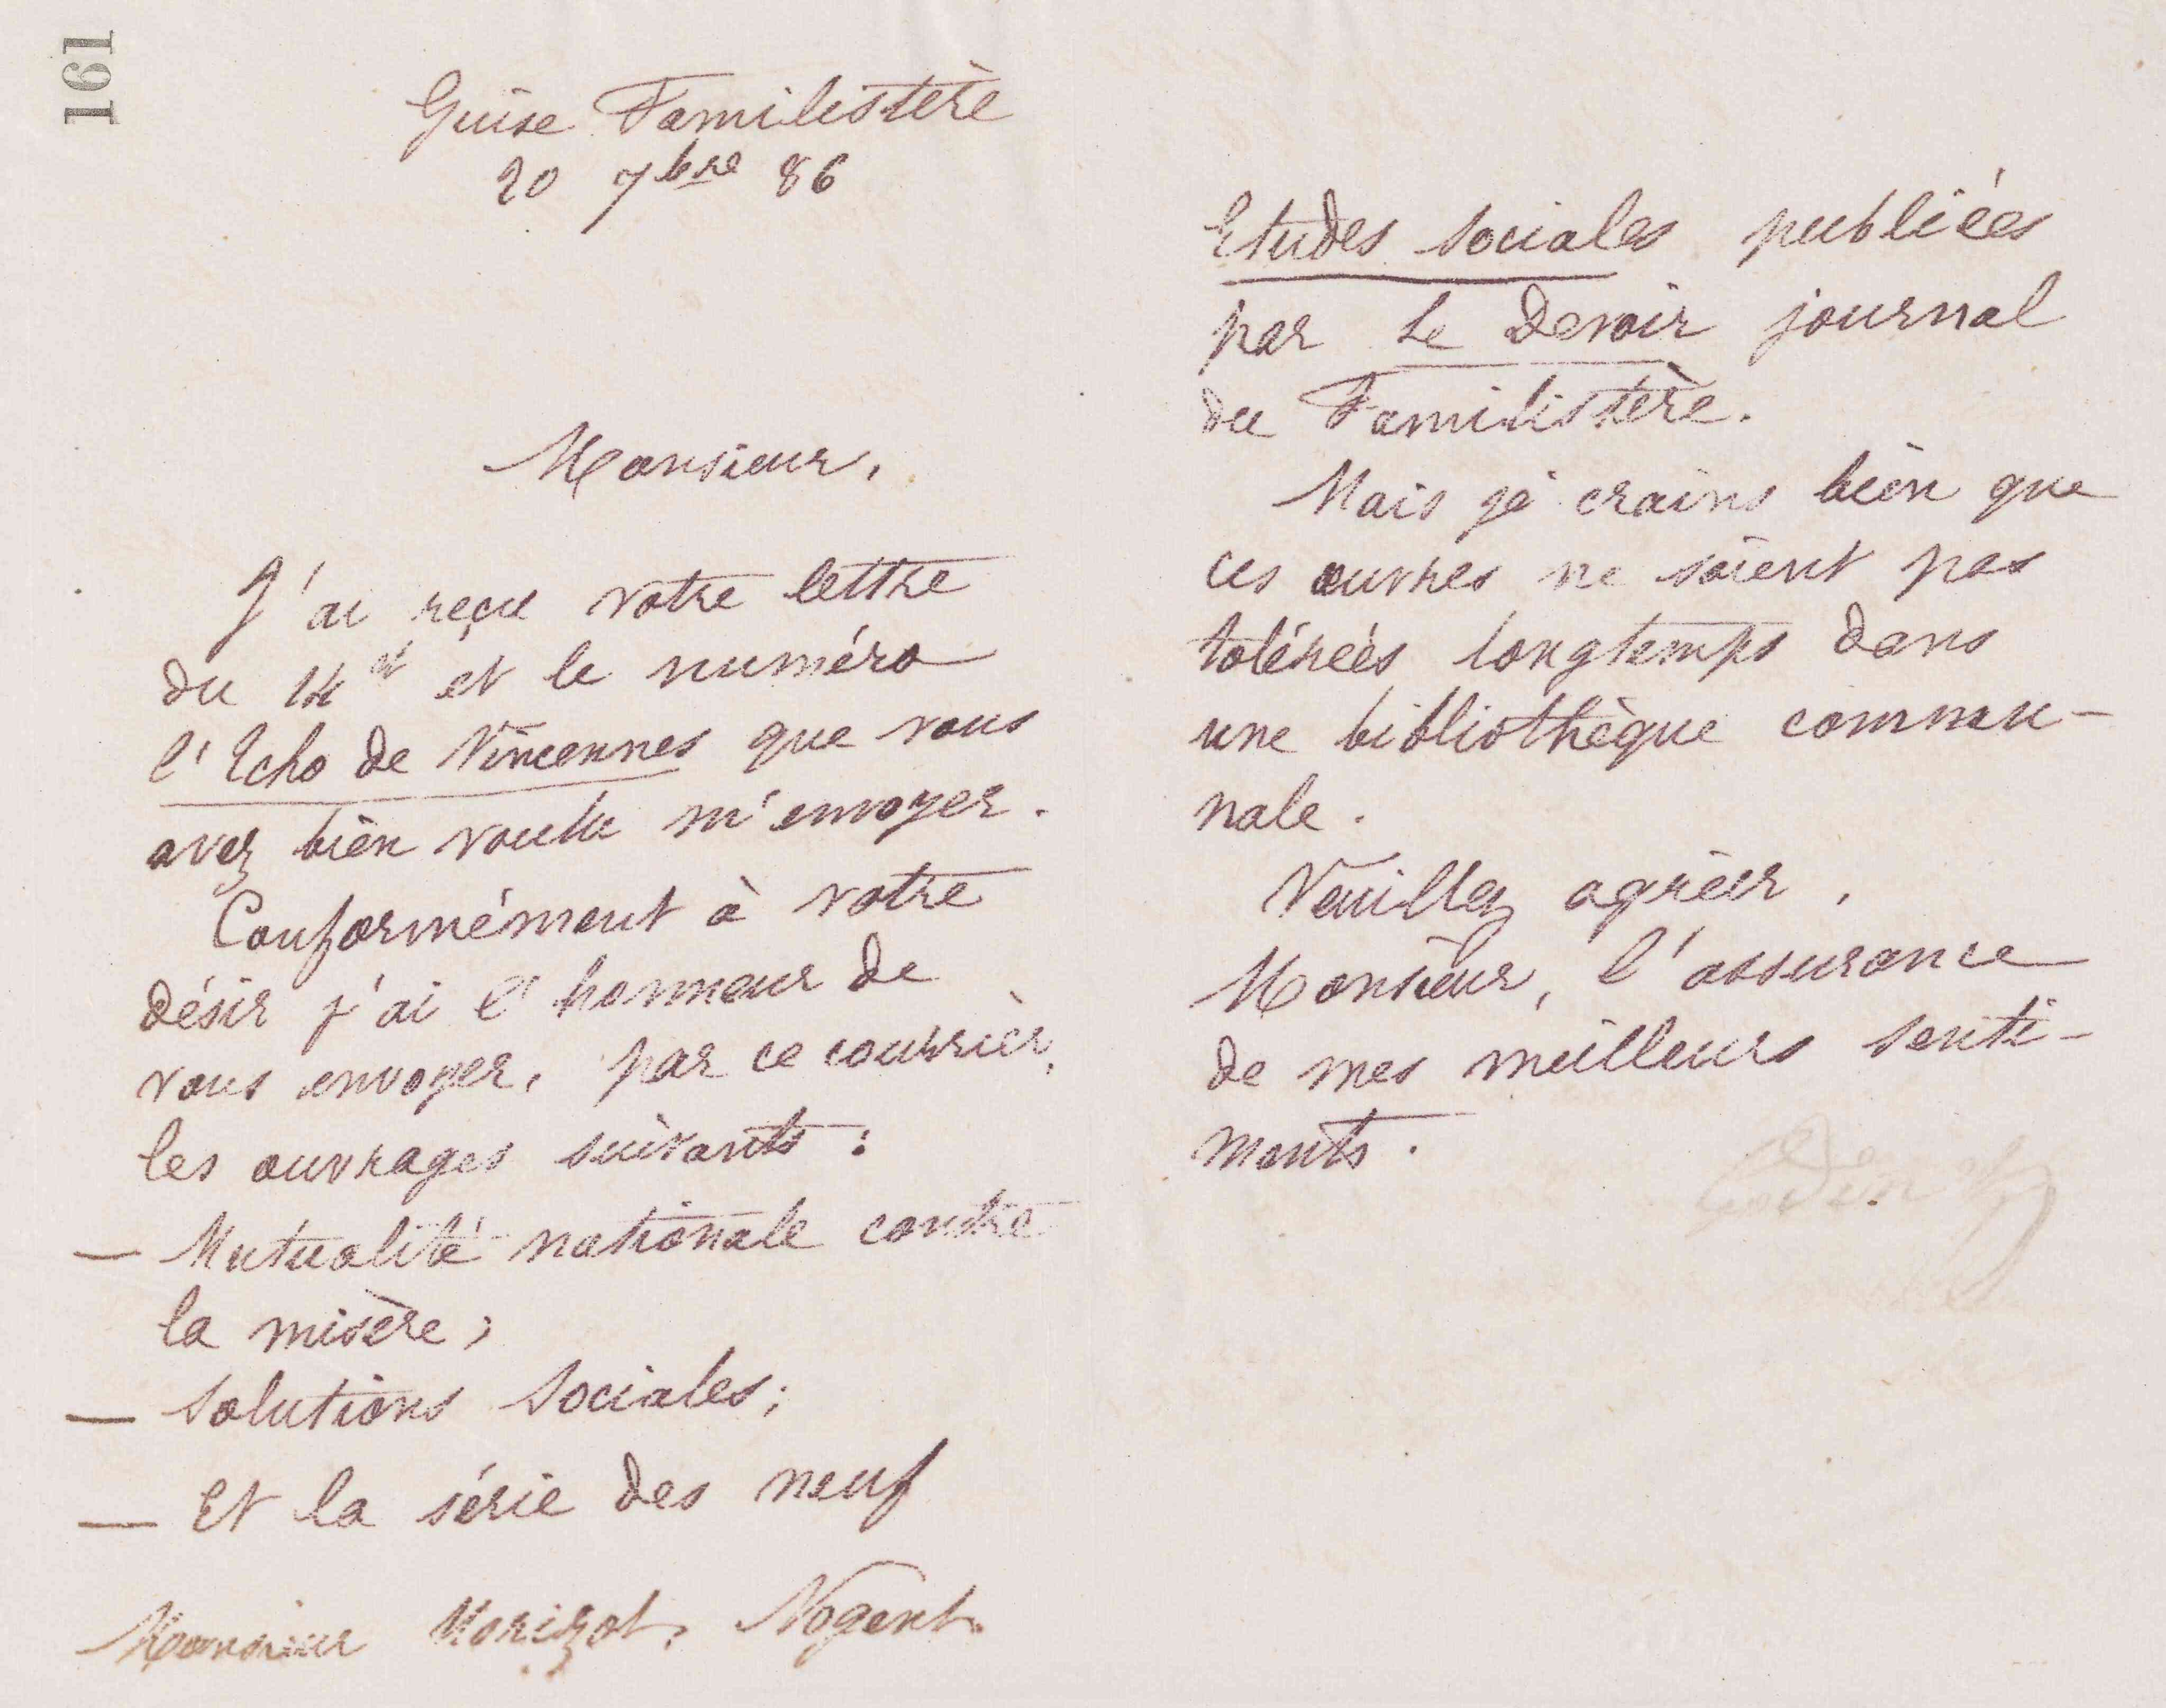 161
Guise Familistère
20 7bre 86
Monsieur,
J'ai reçu votre lettre
du 14 ct et le numéro
l'Echo de Vincennes que vous
avez bien voulu m'envoyer.
Conformément à votre
désir j'ai l'honneur de
vous envoyer, par ce courrier,
les ouvrages suivants :
— Mutualité nationale contre
la misère ;
— Solutions sociales ;
— Et la série des neuf
Monsieur Morizot, Nogent.
Etudes sociales publiées
par Le Devoir journal
du Familistère.
Mais je crains bien que
ces œuvres ne soient pas
tolérées longtemps dans
une bibliothèque commu-
nale.
Veuillez agréer,
Monsieur, l'assurance
de mes meilleurs senti-
ments.
Godin